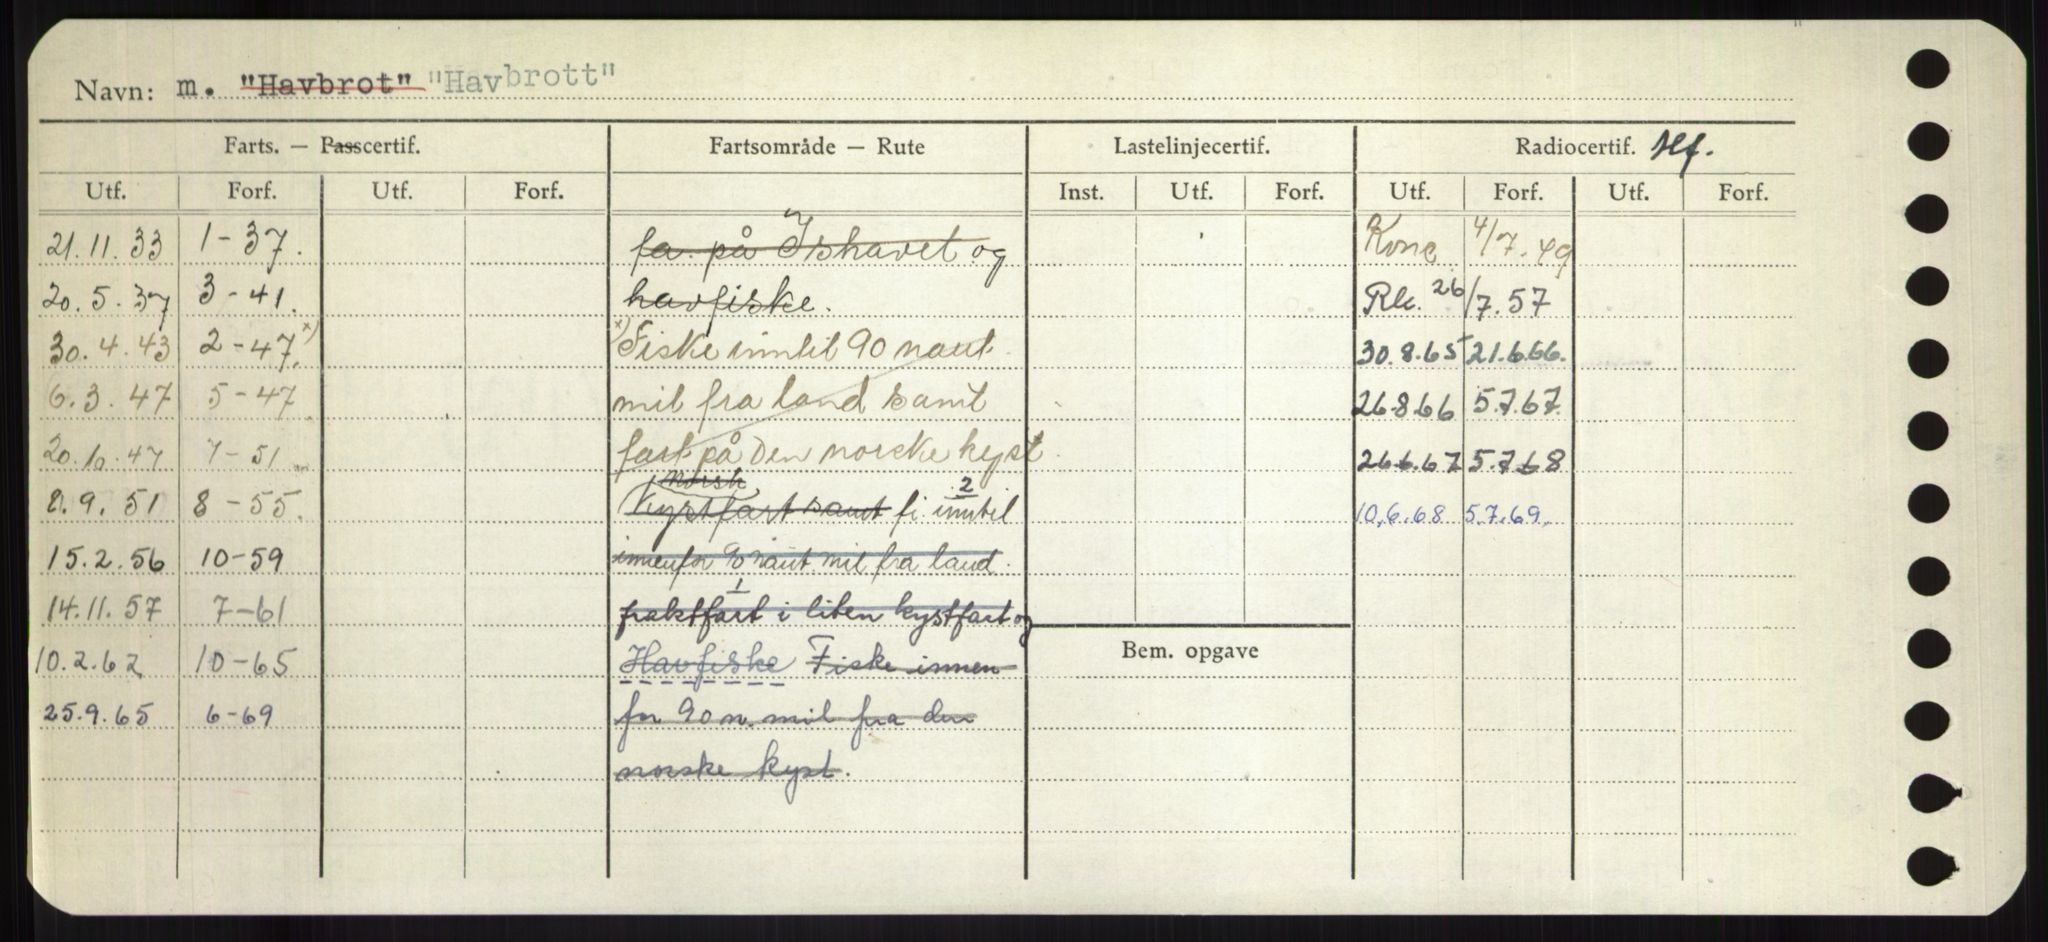 Navn: m. "Havbrot" "Havbrott"
Farts. — Passcertif. Fartsområde — Rute Lastelinjecertif. Radiocertif. Hf.
Utf. Forf. Utf. Forf. Inst. Utf. Forf. Utf. Forf. Utf. Forf.
21.11.33 1-37. fa. på Ishavet og Konc 4/7.49
20.5.37 3-41. havfiske. Rk. 26/7.57
30.4.43 2-47. x) x) Fiske inntil 90 naut. 30.8.65 21.6.66.
6.3.47 5-47. mil fra land samt 26.8.66 5.7.67.
20.10.47 7-51 fart på den norske kyst 26.6.67 5.7.68
norsk 2
8.9.51 8-55. Kystfart samt fi. inntil 10.6.68 5.7.69.
15.2.56 10-59 innenfor 90 naut. mil fra land.
1
14.11.57 7-61 fraktfart i liten kystfart og
10.2.62 10-65 Havfiske Fiske innen Bem. opgave
25.9.65 6-69 for 90 n. mil fra den
norske kyst.